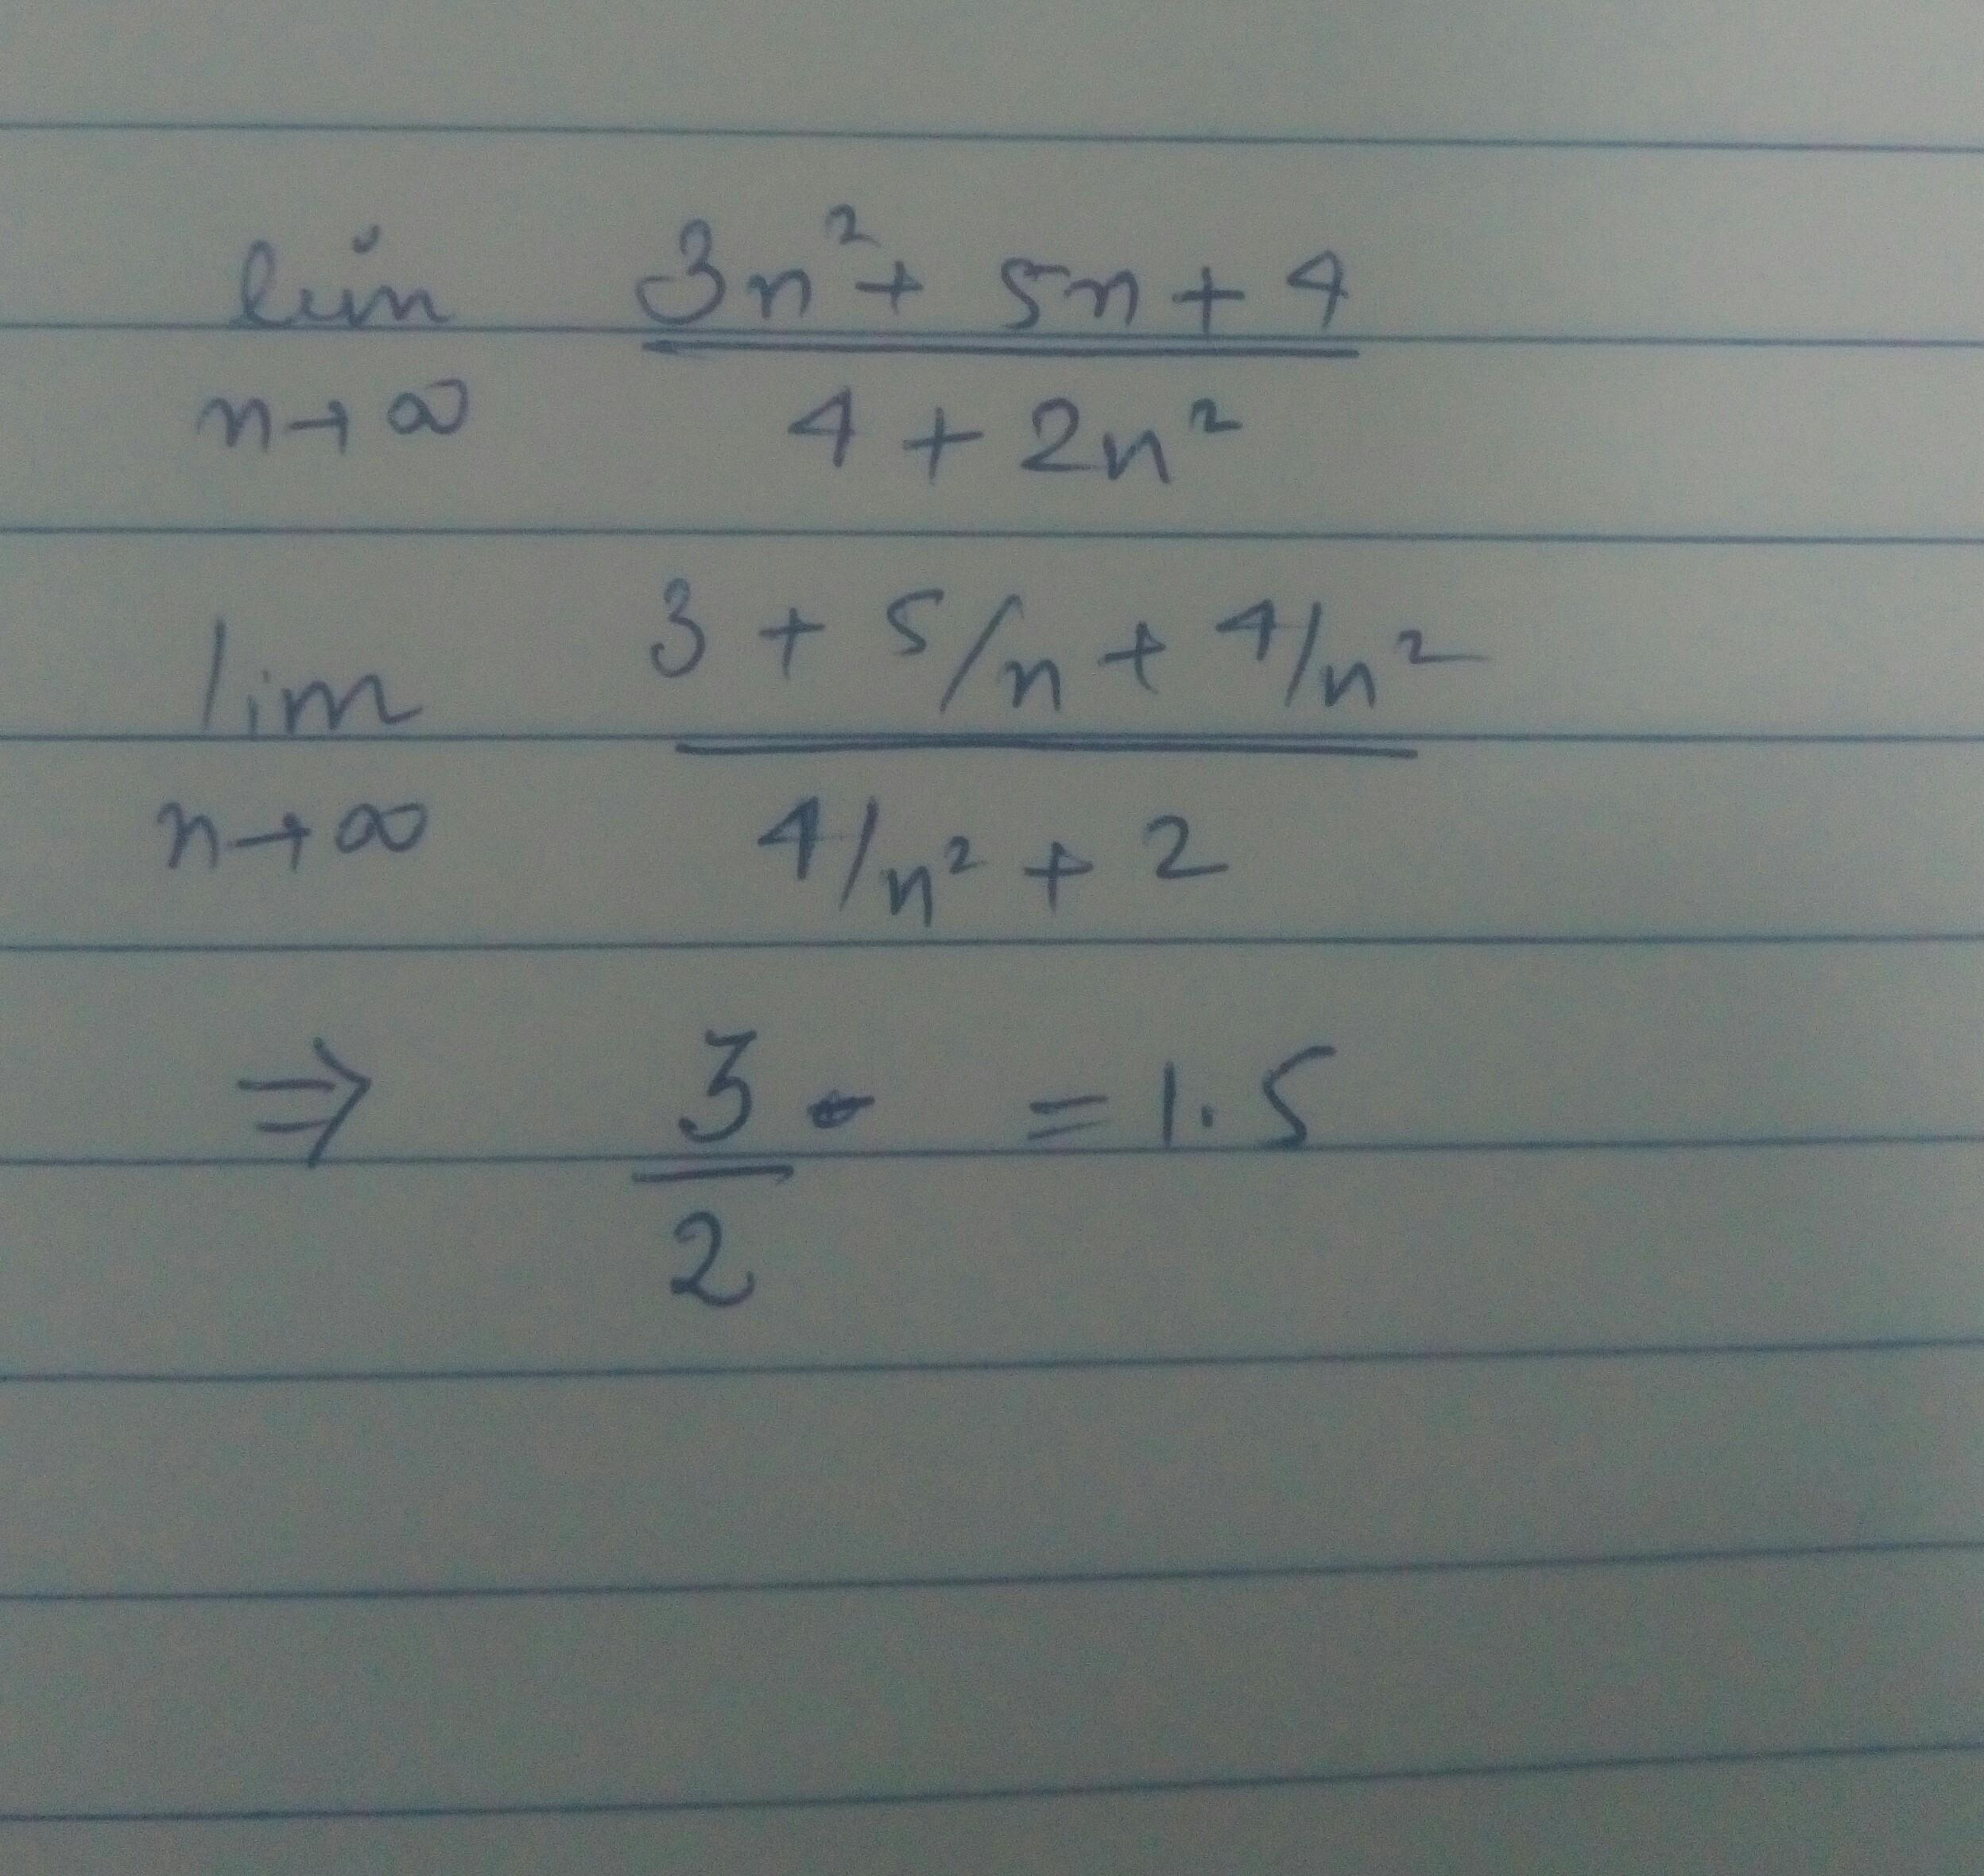 lim 3n² + 5n + 4
n→∞ 4 + 2n²
lim 3 + 5/n + 4/n²
n→∞ 4/n² + 2
⇒ 3 = 1.5
2